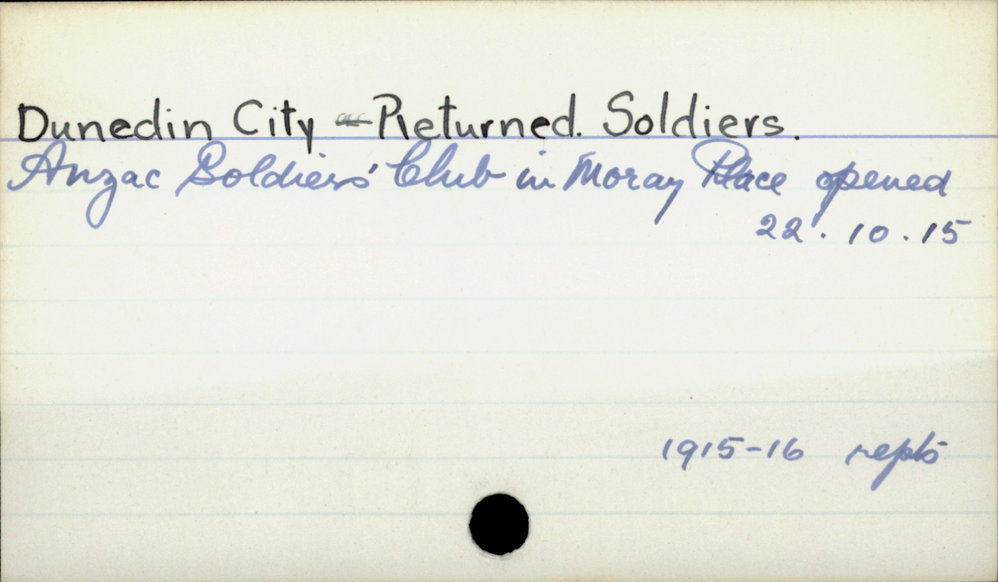 Dunedin City - Returned. Soldiers.
Anzac Soldiers' Club in Moray Place opened
22.10.15
1915-16 repts